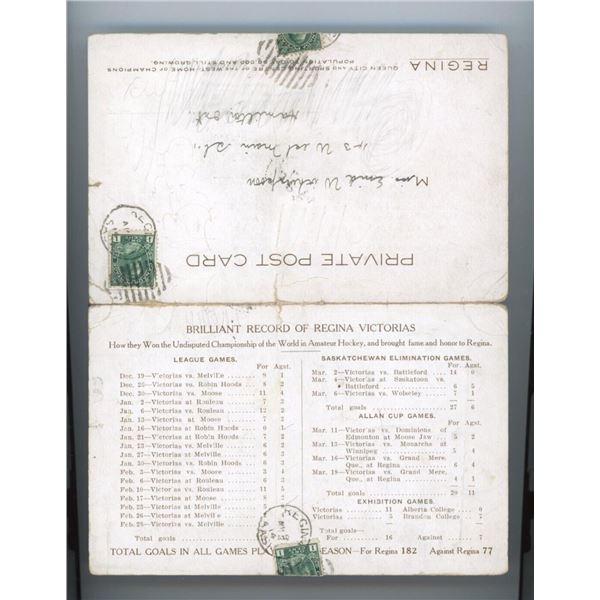 REGINA
QUEEN CITY AND SPORTING CENTRE OF THE WEST. HOME OF CHAMPIONS
POPULATION TODAY 50,000 AND STILL GROWING.
Hamilton Ont.
143 West Main St.
Miss Enid
PRIVATE POST CARD
BRILLIANT RECORD OF REGINA VICTORIAS
How they Won the Undisputed Championship of the World in Amateur Hockey, and brought fame and honor to Regina.
LEAGUE GAMES.
For Agst.
Dec. 19—Victorias vs. Melville 9 1
Dec. 25—Victorias vs. Robin Hoods 8 2
Dec. 30—Victorias vs. Moose 11 4
Jan. 2—Victorias at Rouleau 7 3
Jan. 6—Victorias vs. Rouleau 12 2
Jan. 13—Victorias at Moose 7 2
Jan. 16—Victorias at Robin Hoods 0
Jan. 21—Victorias at Robin Hoods 7 2
Jan. 23—Victorias vs. Melville 6 2
Jan. 27—Victorias at Melville 6 3
Jan. 30—Victorias vs. Robin Hoods 6 3
Feb. 3—Victorias vs. Moore 3 4
Feb. 6—Victorias at Rouleau 6 3
Feb. 10—Victorias vs. Rouleau 11 5
Feb. 17—Victorias at Moose 8
Feb. 23—Victorias at Melville
Feb. 25—Victorias at Melville
Feb. 28—Victorias vs. Melville
Total of goals
SASKATCHEWAN ELIMINATION GAMES.
For Agst.
Mar. 2—Victorias vs. Battleford 14 0
Mar. 4—Victorias at Saskatoon vs.
Battleford 6 5
Mar. 6—Victorias vs. Wolseley 7 1
Total goals 27 6
ALLAN CUP GAMES.
For Agst.
Mar. 11—Victorias vs. Dominions of
Edmonton at Moose Jaw 5 2
Mar. 13—Victorias vs. Monarchs at
Winnipeg 5 4
Mar. 16—Victorias vs. Grand Mere,
Que., at Regina 6 4
Mar. 18—Victorias vs. Grand Mere,
Que., at Regina 4 1
Total goals 20 11
EXHIBITION GAMES.
Victorias 11 Alberta College 0
Victorias 5 Brandon College 7
Total goals—
For 16 Against 7
TOTAL GOALS IN ALL GAMES EASON—For Regina 182 Against Regina 77